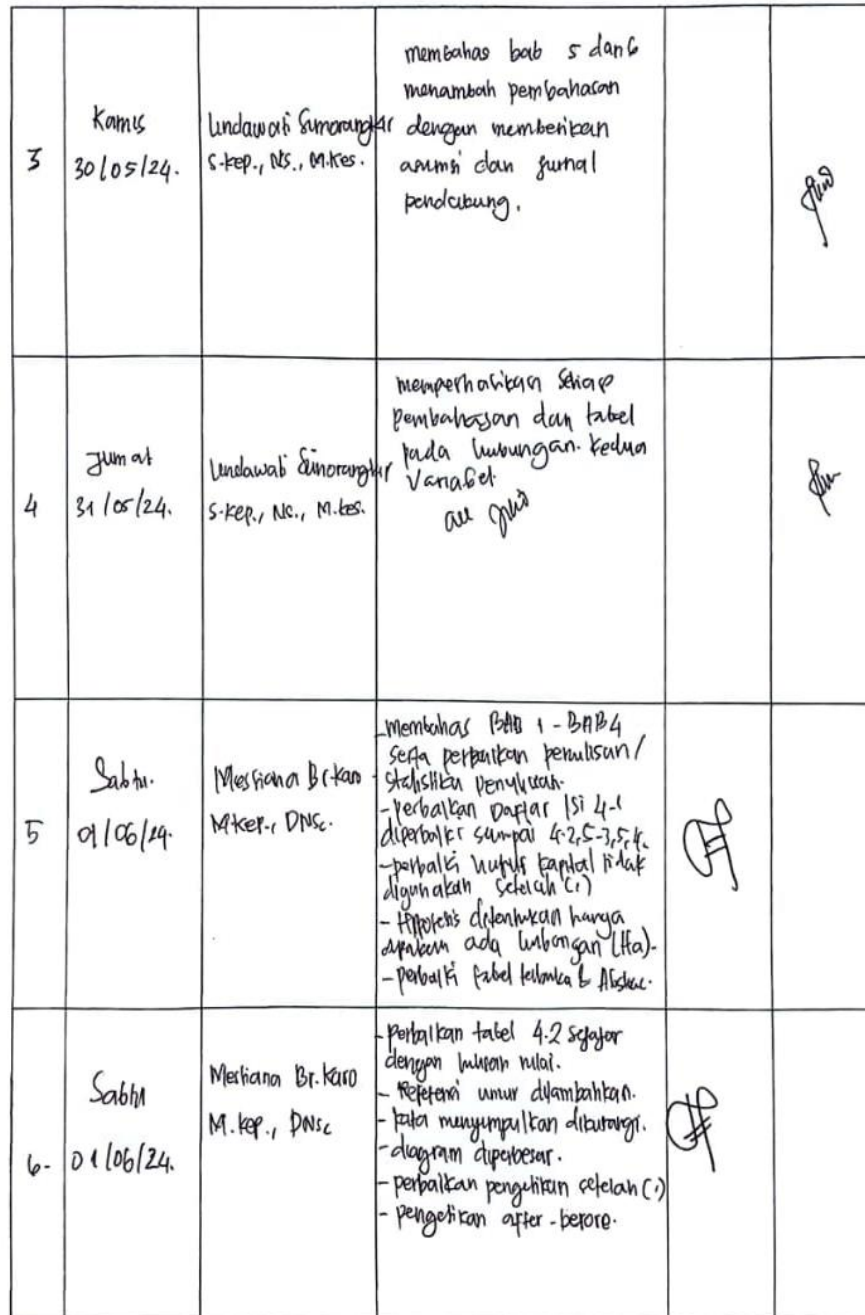 3
Kamis
30/05/24.
Lindawati Simorangkir
S.Kep., Ns., M.Kes.
membahas bab 5 dan 6
menambah pembahasan
dengan memberikan
asumsi dan jurnal
pendukung.
4
Jumat
31/05/24.
Lindawati Simorangkir
S.Kep., Ns., M.Kes.
memperhatikan setiap
pembahasan dan tabel
pada hubungan. kedua
Variabel.
5
Sabtu.
01/06/24.
Mestiana Br.Karo
M.Kep., DNSc.
- membahas BAB 1 - BAB 4
serta perbaikan penulisan/
- perbaikan Daftar Isi 4-1
sampai 4-2, 5-3, 5.4.
- perbaiki huruf kapital tidak
digunakan setelah (;)
- Hipotesis ditentukan hanya
ada hubungan (Ha).
- perbaiki tabel terbuka & Abstrac.
6-
Sabtu
01/06/24.
Mestiana Br.Karo
M.Kep., DNSc
- perbaikan tabel 4.2 sejajar
dengan tulisan nilai.
- Referensi umur ditambahkan.
- kata menyimpulkan dikurangi.
- diagram diperbesar.
- perbaikan pengetikan setelah (;)
- pengetikan after-before.